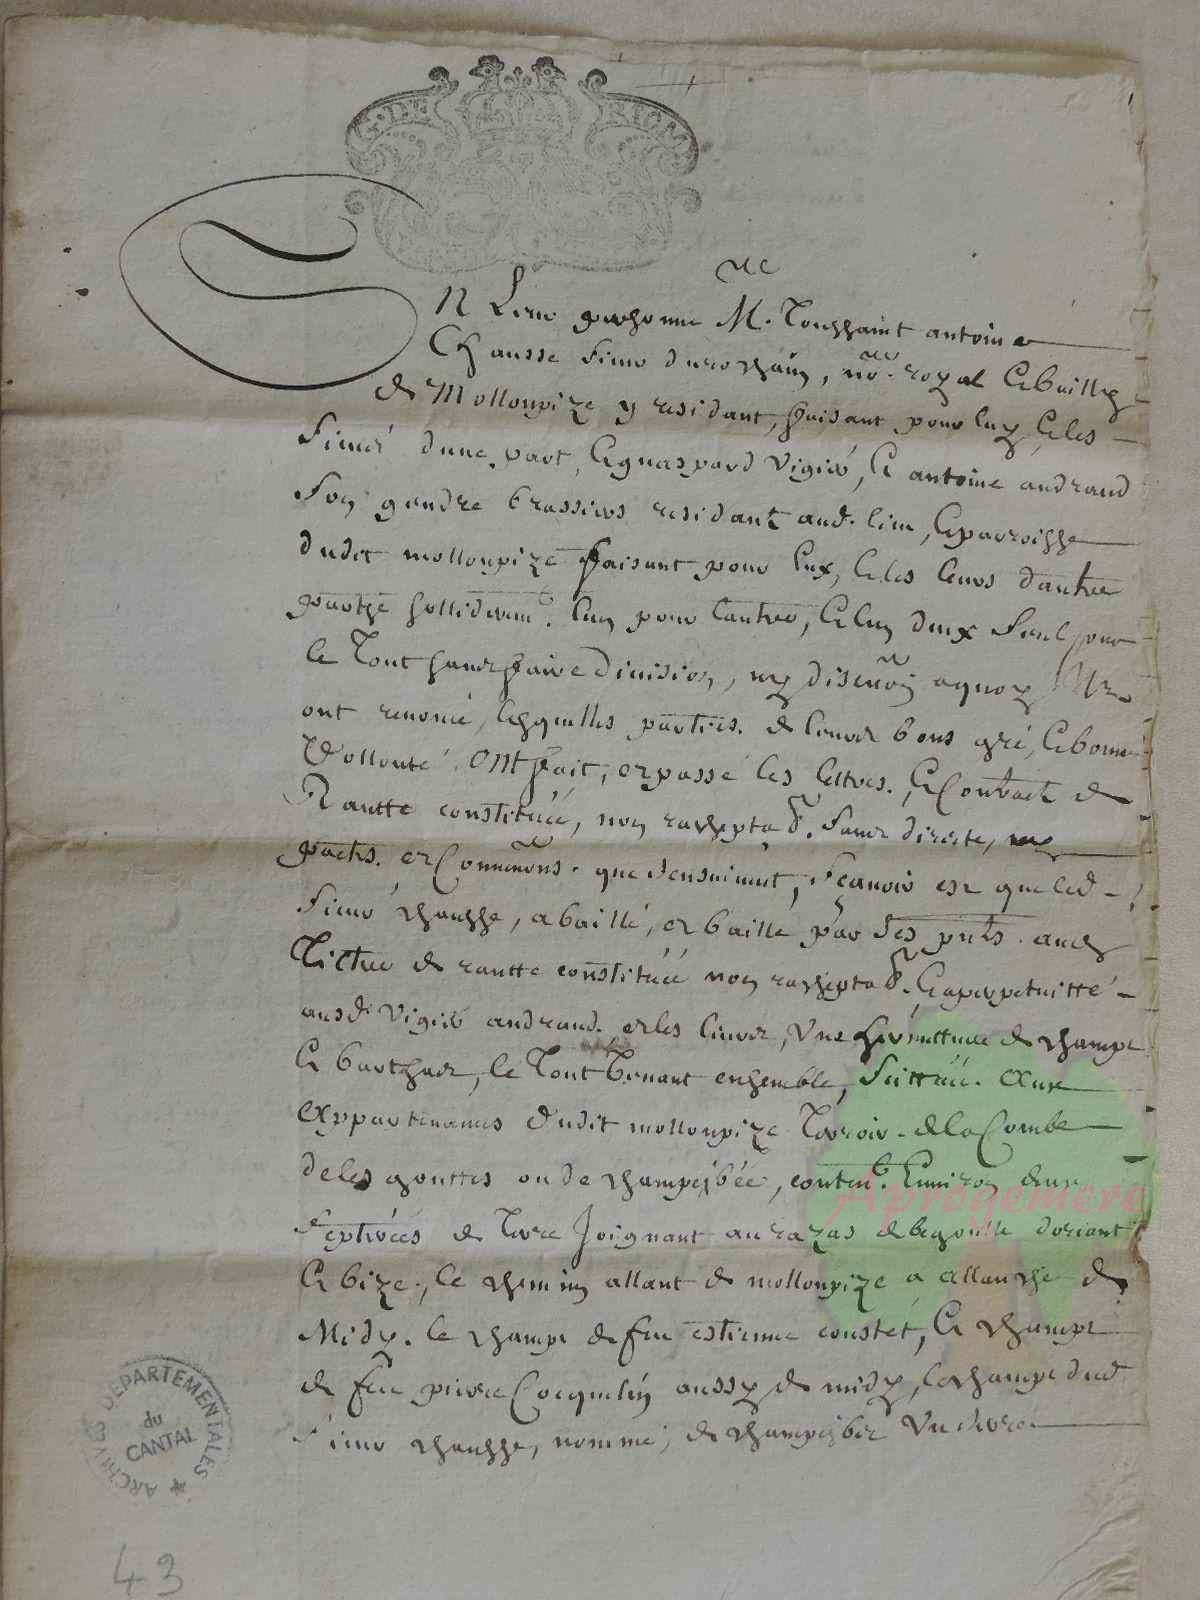 G. DE RIOM
En Leur personne Me. Toussaint antoine
Chausse sieur du rochain, nore. royal & baille
de Mollompize y residant, faisant pour luy & les
siens dune part, & guaspard Vigier, & antoine andraud
son gendre brassiers residant aud. lieu, & parroisse
dudit mollompize faisant pour Eux, & les leurs dautre
partye sollideremt. lun pour lautre, & lun deux seul pour
le Tout sans faire Division, ny discuon aquoy
ont renoncé, lesquelles parties. de leurs bons gré, & bonne
Vollonté. ont fait, et passé les lettres. & Contract de
Rantte constituée, non racheptable. sans directe,
pactes. et Conventions. que sensuivent, sçavoir est que led.
sieur chausse, a baillé, et baille par Ses pntes. aud
Tictre de rantte constituée non racheptable. & a perpetuitté
ausd. Vigier andraud. et les leurs, Une de champt
& barthas, le Tout Tenant ensemble, sittué. aux
appartenances dudit mollompize Terroir de la Combe
de les gouttes ou de champeibée, content. Environ deux
septérées de Terre Joignant au razas de begoulle doriant
& bize, le chemin allant de mollompize a allanche de
Midy. le champt de feu estienne constet, & champt
de feu pierre Cocquelin aussy de midy, le champt dud
sieur chausse, nommé, de champeiber
ARCHIVES DEPARTEMENTALES
du
CANTAL
43
Aprogemere